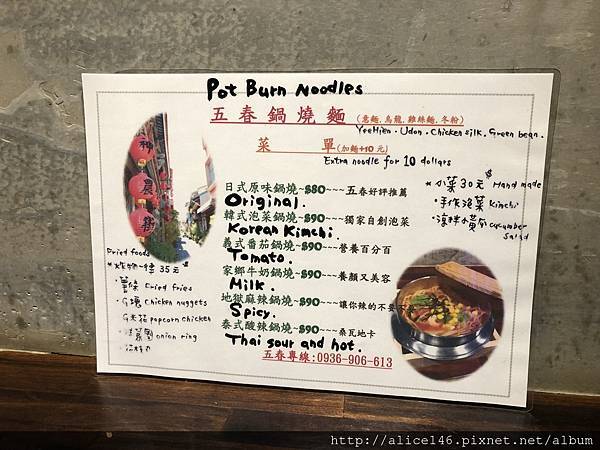 Pot Burn Noodles
五春鍋燒麵(意麵.烏龍.雞絲麵.冬粉)
YeeMien . Udon . Chicken silk . Green bean .
菜 單(加麵+10元)
Extra noodle for 10 dollars
日式原味鍋燒~$80~~~五春好評推薦
Original .
韓式泡菜鍋燒~$90~~~獨家自創泡菜
Korean Kimchi .
義式番茄鍋燒~$90~~~營養百分百
Tomato .
家鄉牛奶鍋燒~$90~~~養顏又美容
Milk .
地獄麻辣鍋燒~$90~~~讓你辣的不要不
Spicy .
泰式酸辣鍋燒~$90~~~桑瓦地卡
Thai sour and hot .
五春專線:0936-906-613
*小菜30元 Hand made
手作泡菜 Kimchi
涼拌小黃瓜 cucumber
Salad
神農街
Fried foods
*炸物一律35元
薯條 Fried fries
G塊 Chicken nuggets
G米花 popcorn chicken
洋蔥圈 onion ring
http://alice146.pixnet.net/album